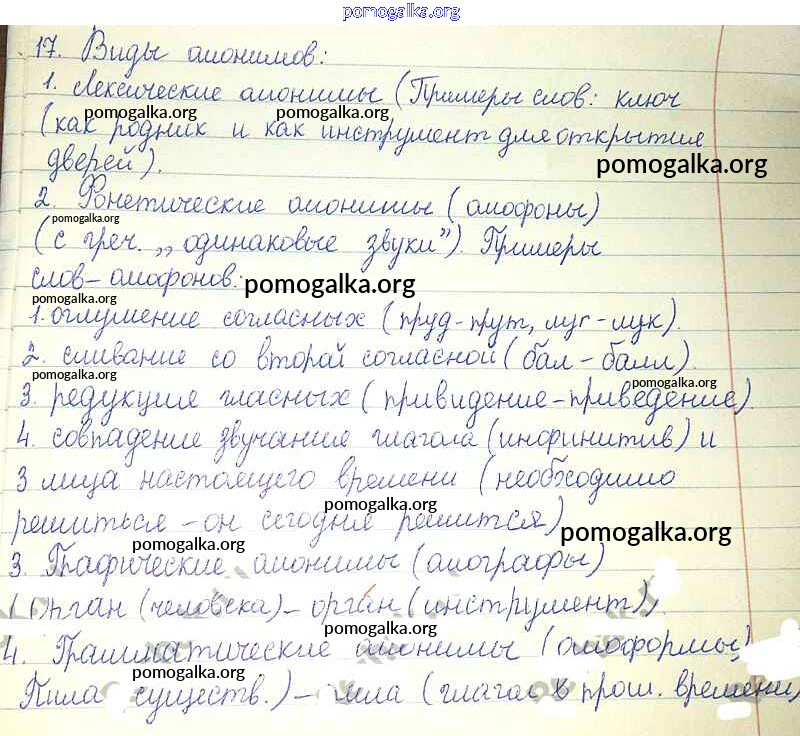 pomogalka.org
17. Виды омонимов:
1. Лексические омонимы (Примеры слов: ключ
pomogalka.org pomogalka.org
(как родник и как инструмент для открытия
дверей).
pomogalka.org
2. Фонетические омонимы (омофоны)
pomogalka.org
(с греч. „одинаковые звуки”). Примеры
слов-омофонов:
pomogalka.org
pomogalka.org
1. оглушение согласных (пруд-прут, луг-лук).
2. сливание со второй согласной (бал-балл).
pomogalka.org pomogalka.org
3. редукция гласных (привидение-приведение).
4. совпадение звучания глагола (инфинитив) и
3 лица настоящего времени (необходимо
pomogalka.org
решиться - он сегодня решится)
pomogalka.org pomogalka.org
3. Графические омонимы (омографы)
Орган (человека) - орган (инструмент),
pomogalka.org
4. Грамматические омонимы (омоформы)
pomogalka.org
Пила существ.) - пила (глагол в прош. времени)